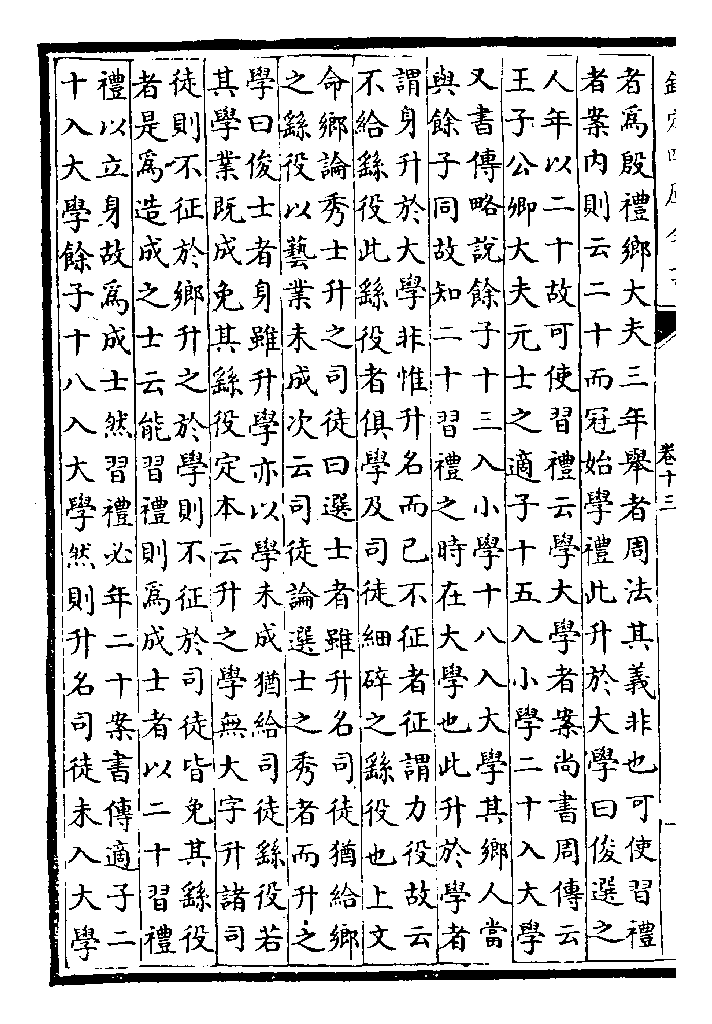 欽定四庫全書
卷十三
者爲殷禮鄉大夫三年舉者周法其義非也可使習禮
者案內則云二十而冠始學禮此升於大學曰俊選之
人年以二十故可使習禮云學大學者案尚書周傳云
王子公卿大夫元士之適子十五入小學二十入大學
又書傳略說餘子十三入小學十八入大學其鄉人當
與餘子同故知二十習禮之時在大學也此升於學者
謂身升於大學非惟升名而已不征者征謂力役故云
不給繇役此繇役者俱學及司徒細碎之繇役也上文
命鄉論秀士升之司徒曰選士者雖升名司徒猶給鄉
之繇役以藝業未成次云司徒論選士之秀者而升之
學曰俊士者身雖升學亦以學未成猶給司徒繇役若
其學業既成免其繇役定本云升之學無大字升諸司
徒則不征於鄉升之於學則不征於司徒皆免其繇役
者是爲造成之士云能習禮則爲成士者以二十習禮
禮以立身故爲成士然習禮必年二十案書傳適子二
十入大學餘子十八入大學然則升名司徒未入大學